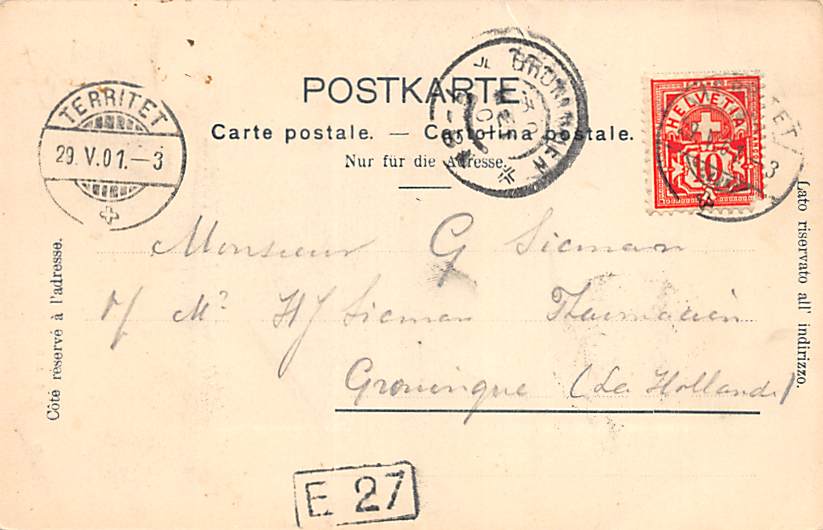 POSTKARTE.
Carte postale. — Cartolina postale.
Nur für die Adresse.
TERRITET
29. V. 01. – 3
GRONINGEN
HELVETIA
10
Côté réservé à l'adresse.
Lato riservato all' indirizzo.
Monsieur G Sieman
Mr HJ Sieman
Groningue (La Hollande)
E 27